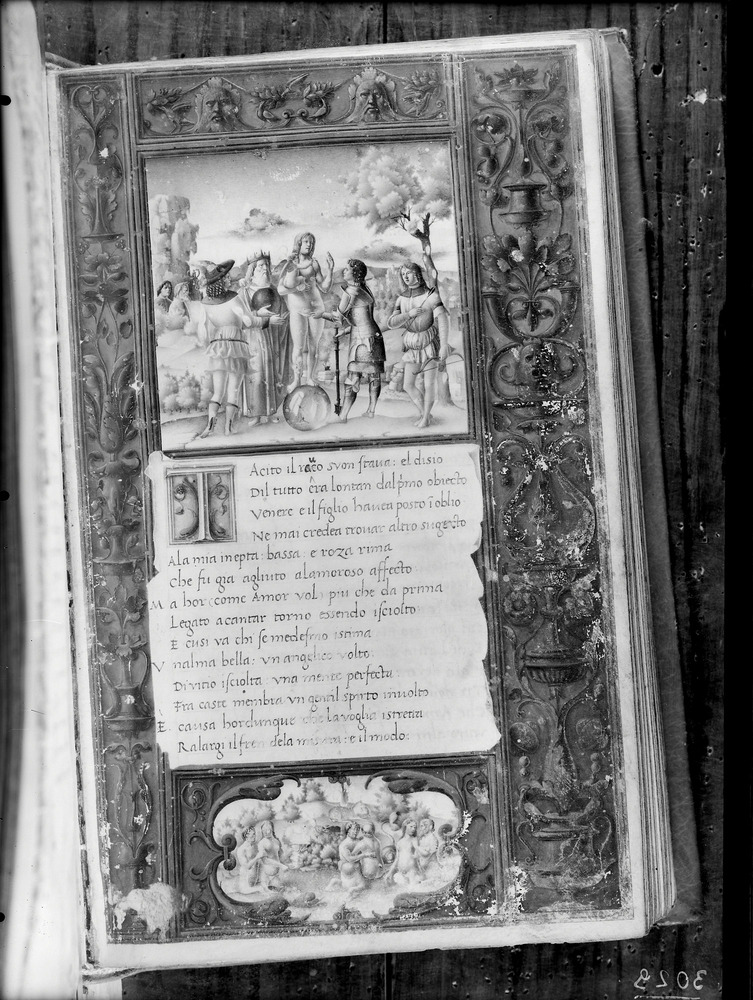 T Acito il rauco suon staua: el disio
Dil tutto era lontan dal pmo obiecto
Venere e il figlio hauea posto ī oblio
Ne mai credea trouar altro sugecto
Ala mia inepta: bassa: e roza rima
Che fu gia agliuto alamoroso affecto
M a hor: come Amor vol: piu che da prima
Legato a cantar torno essendo isciolto
E cusi va chi se medesmo istima
V nalma bella: vn angelico volto:
Di vitio isciolta: vna mente perfecta
Fra caste membra vn gentil spirto inuolto
E causa hordunque che la voglia istretta
Ralargi il fren dela misura: e il modo:
3029